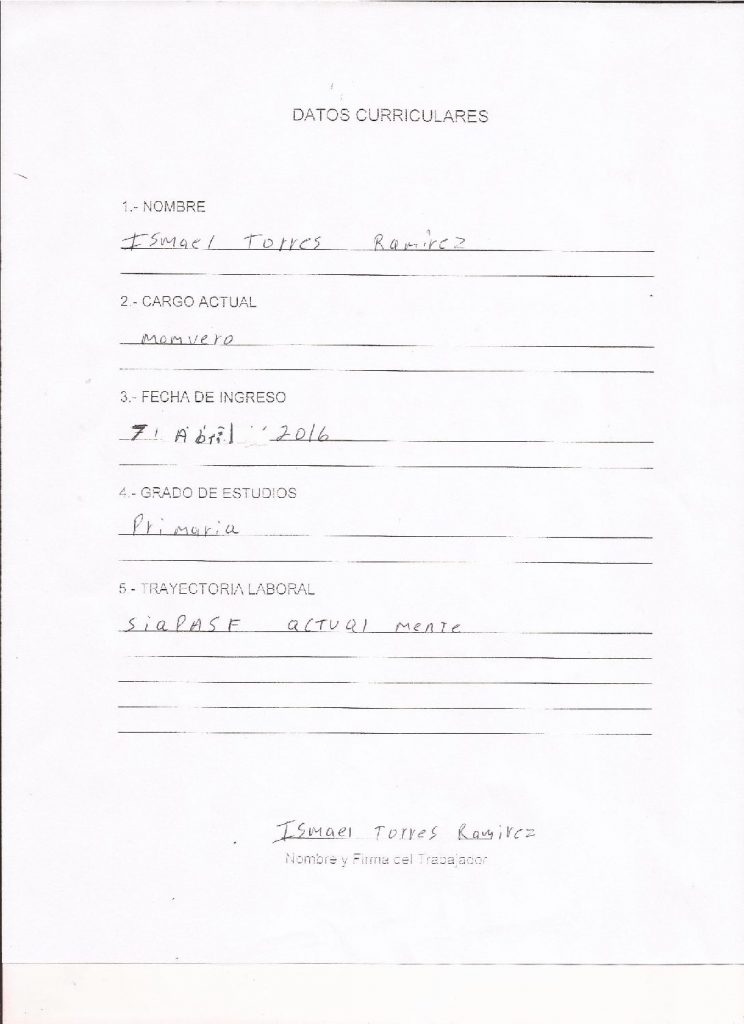 DATOS CURRICULARES
1.- NOMBRE
Ismael Torres Ramirez
2.- CARGO ACTUAL
momvero
3.- FECHA DE INGRESO
7 Abril 2016
4.- GRADO DE ESTUDIOS
Primaria
5.- TRAYECTORIA LABORAL
SiaPASF actual mente
Ismael Torres Ramirez
Nombre y Firma del Trabajador